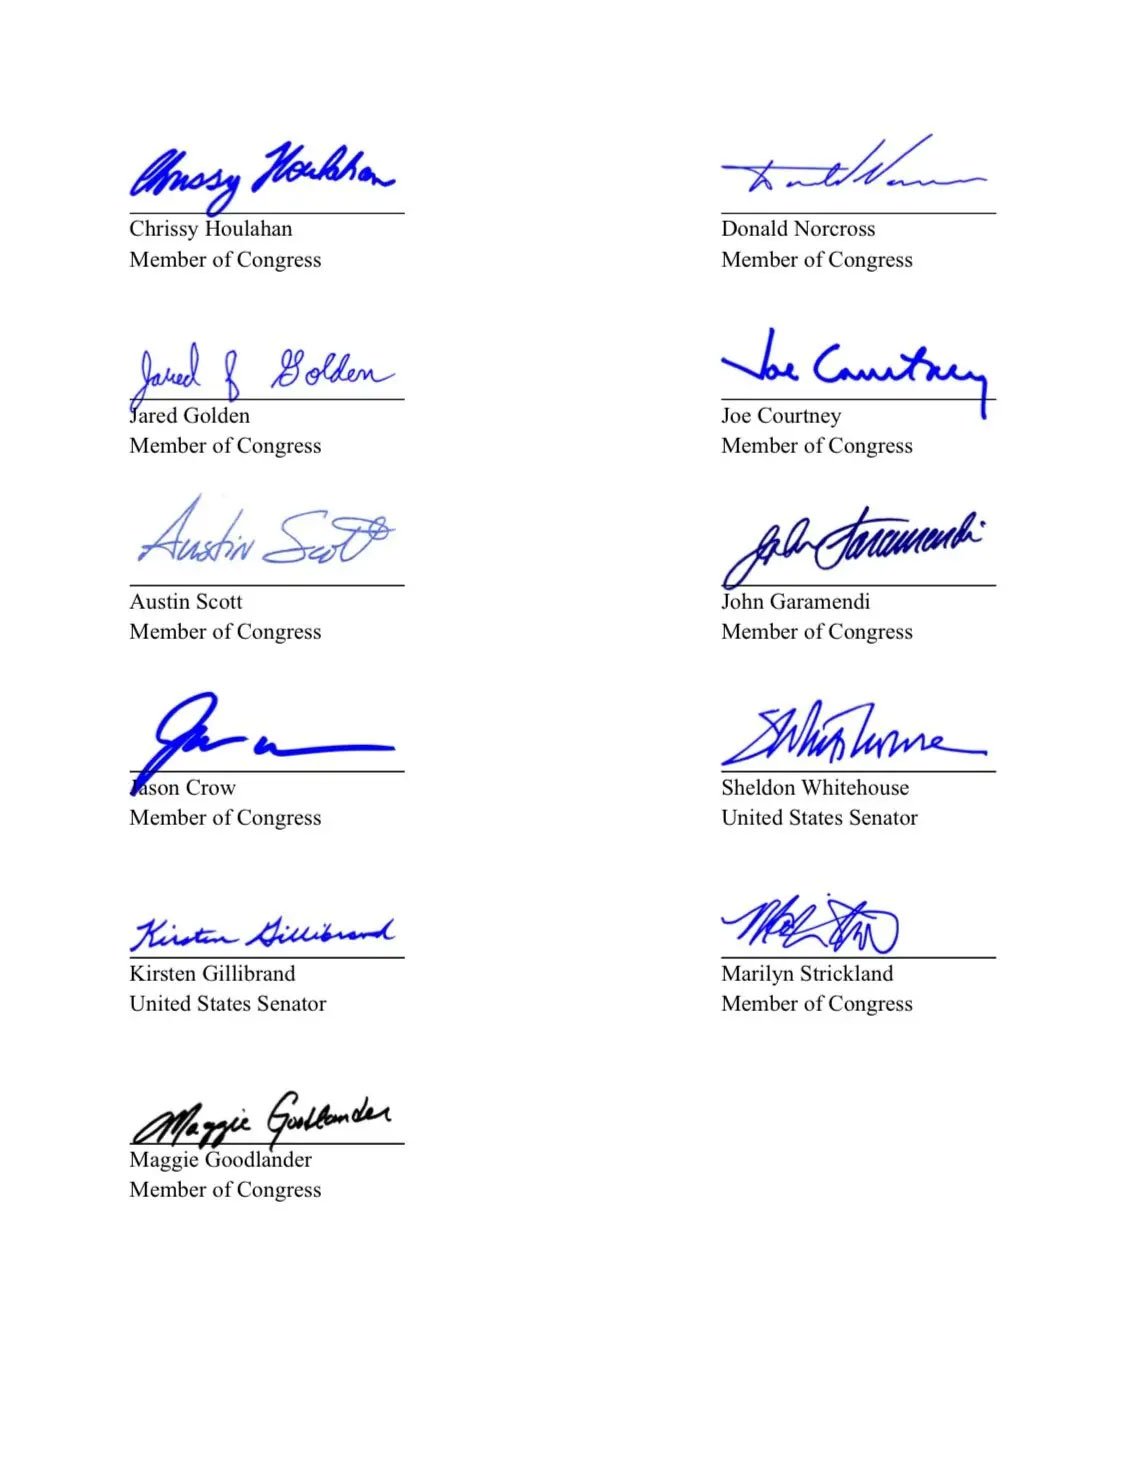 Chrissy Houlahan
Chrissy Houlahan
Member of Congress
Donald Norcross
Member of Congress
Jared F Golden
Jared Golden
Member of Congress
Joe Courtney
Joe Courtney
Member of Congress
Austin Scott
Austin Scott
Member of Congress
John Garamendi
John Garamendi
Member of Congress
Jason Crow
Member of Congress
SWhitehouse
Sheldon Whitehouse
United States Senator
Kirsten Gillibrand
Kirsten Gillibrand
United States Senator
Marilyn Strickland
Member of Congress
Maggie Goodlander
Maggie Goodlander
Member of Congress